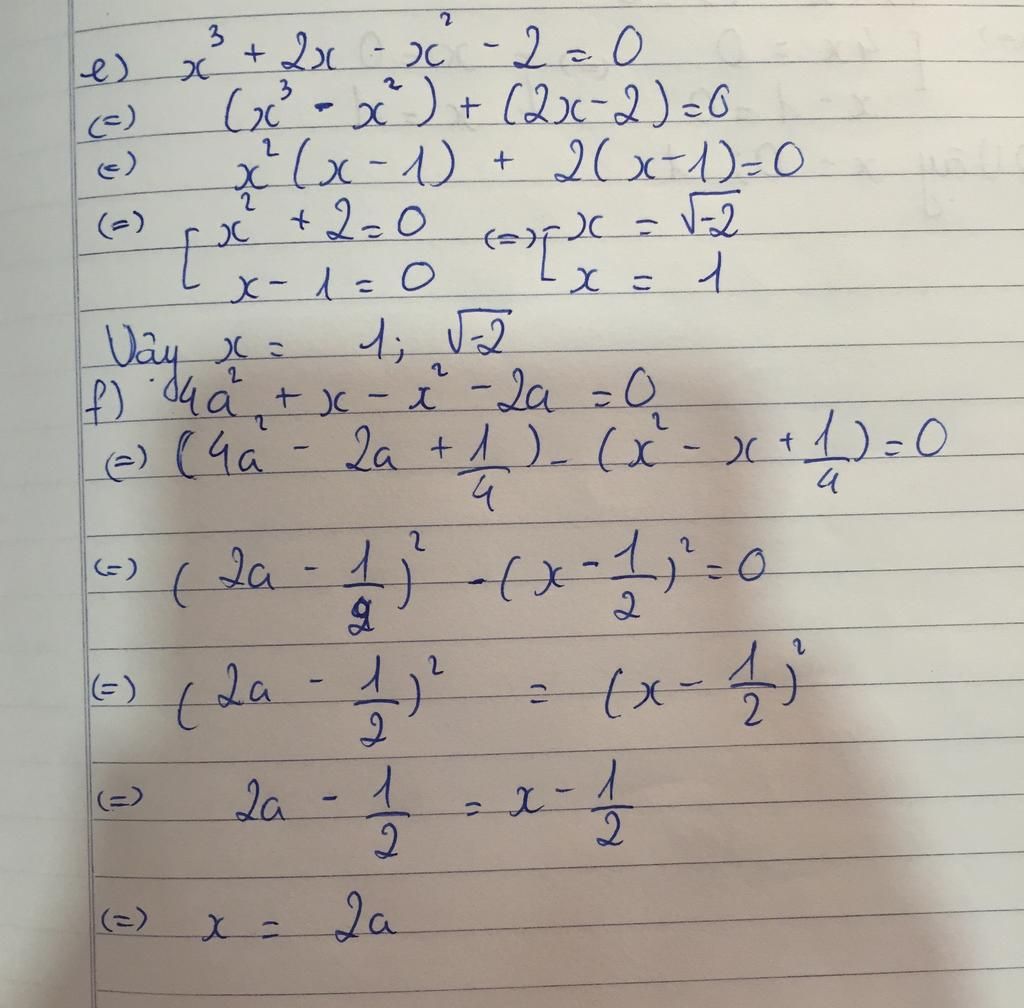 e) x³ + 2x - x² - 2 = 0
(=) (x³ - x²) + (2x - 2) = 0
(=) x² (x - 1) + 2(x - 1) = 0
(=) [ x² + 2 = 0 (=) [ x = √-2
x - 1 = 0 x = 1
Vậy x = 1; √-2
f) 4a² + x - x² - 2a = 0
(=) (4a² - 2a + 1/4) - (x² - x + 1/4) = 0
(=) (2a - 1/2)² - (x - 1/2)² = 0
(=) (2a - 1/2)² = (x - 1/2)²
(=) 2a - 1/2 = x - 1/2
(=) x = 2a